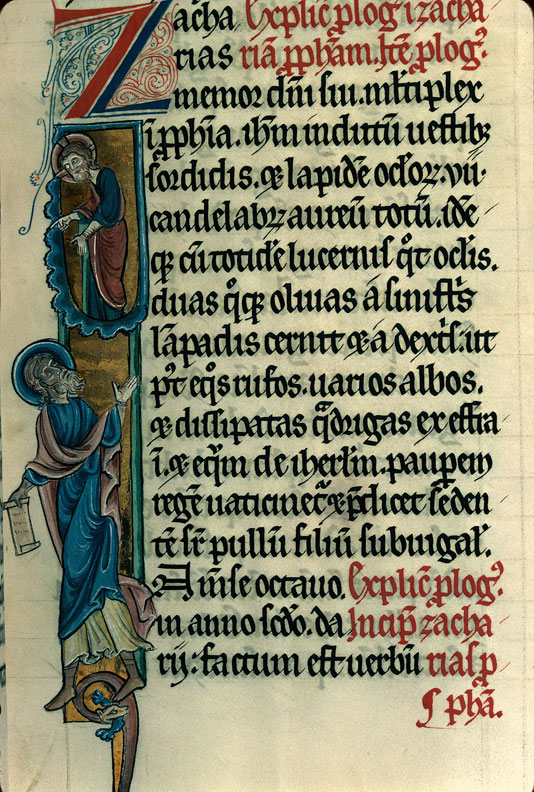 Zacha Explic̄ plog᷒ i zacha
rias riā ꝓpham. Itē plog᷒.
memor dn̄i sui. ml̄tiplex
i ꝓph̄ia. ih̄m indutū uestibꝫ
sordidis. & lapidē ocłoꝝ. vii.
candelabꝝ aureū totū. idē
qꝫ cū totidē lucernis qͦt oclis.
duas qͦqꝫ oliuas a sinist̄s
lāpadis cernit & a dext̄s. ut
pͦt eqͦs rufos. uarios albos.
& dissipatas qͣdrigas ex effra
ī. & eqͫm de iherl̄m. paupem
regē uaticinet̄ & p̄dicet seden
tē sr̄ pullū filiū subiugal̄.
In m̄se octauo. Explic̄ plog᷒.
in anno scd̄o. da Incip̄ zacha
rij: factum est uerbū rias ꝓ
ph̄a.